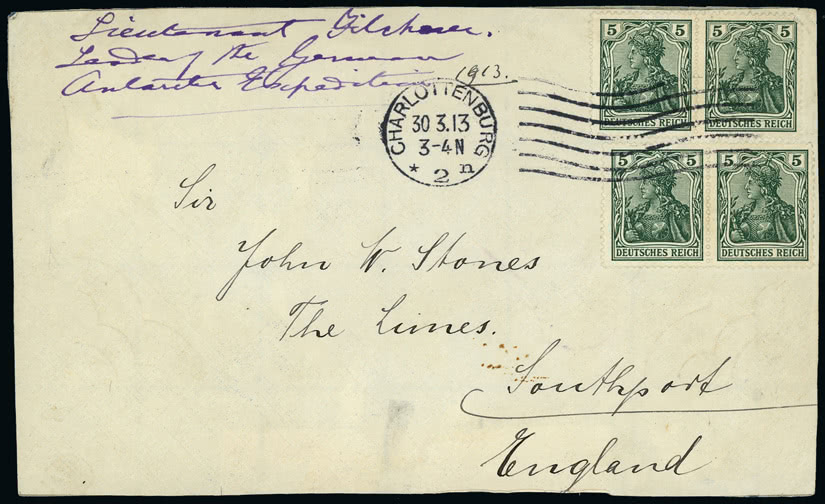 Lieutenant Filchner.
Leader of the German
Antarctic Expedition
1913.
CHARLOTTENBURG
30 3.13
3-4 N
* 2 n
5 5
DEUTSCHES REICH
5 5
DEUTSCHES REICH
5 5
DEUTSCHES REICH
5 5
DEUTSCHES REICH
Sir
John W. Stones
The Limes.
Southport
England